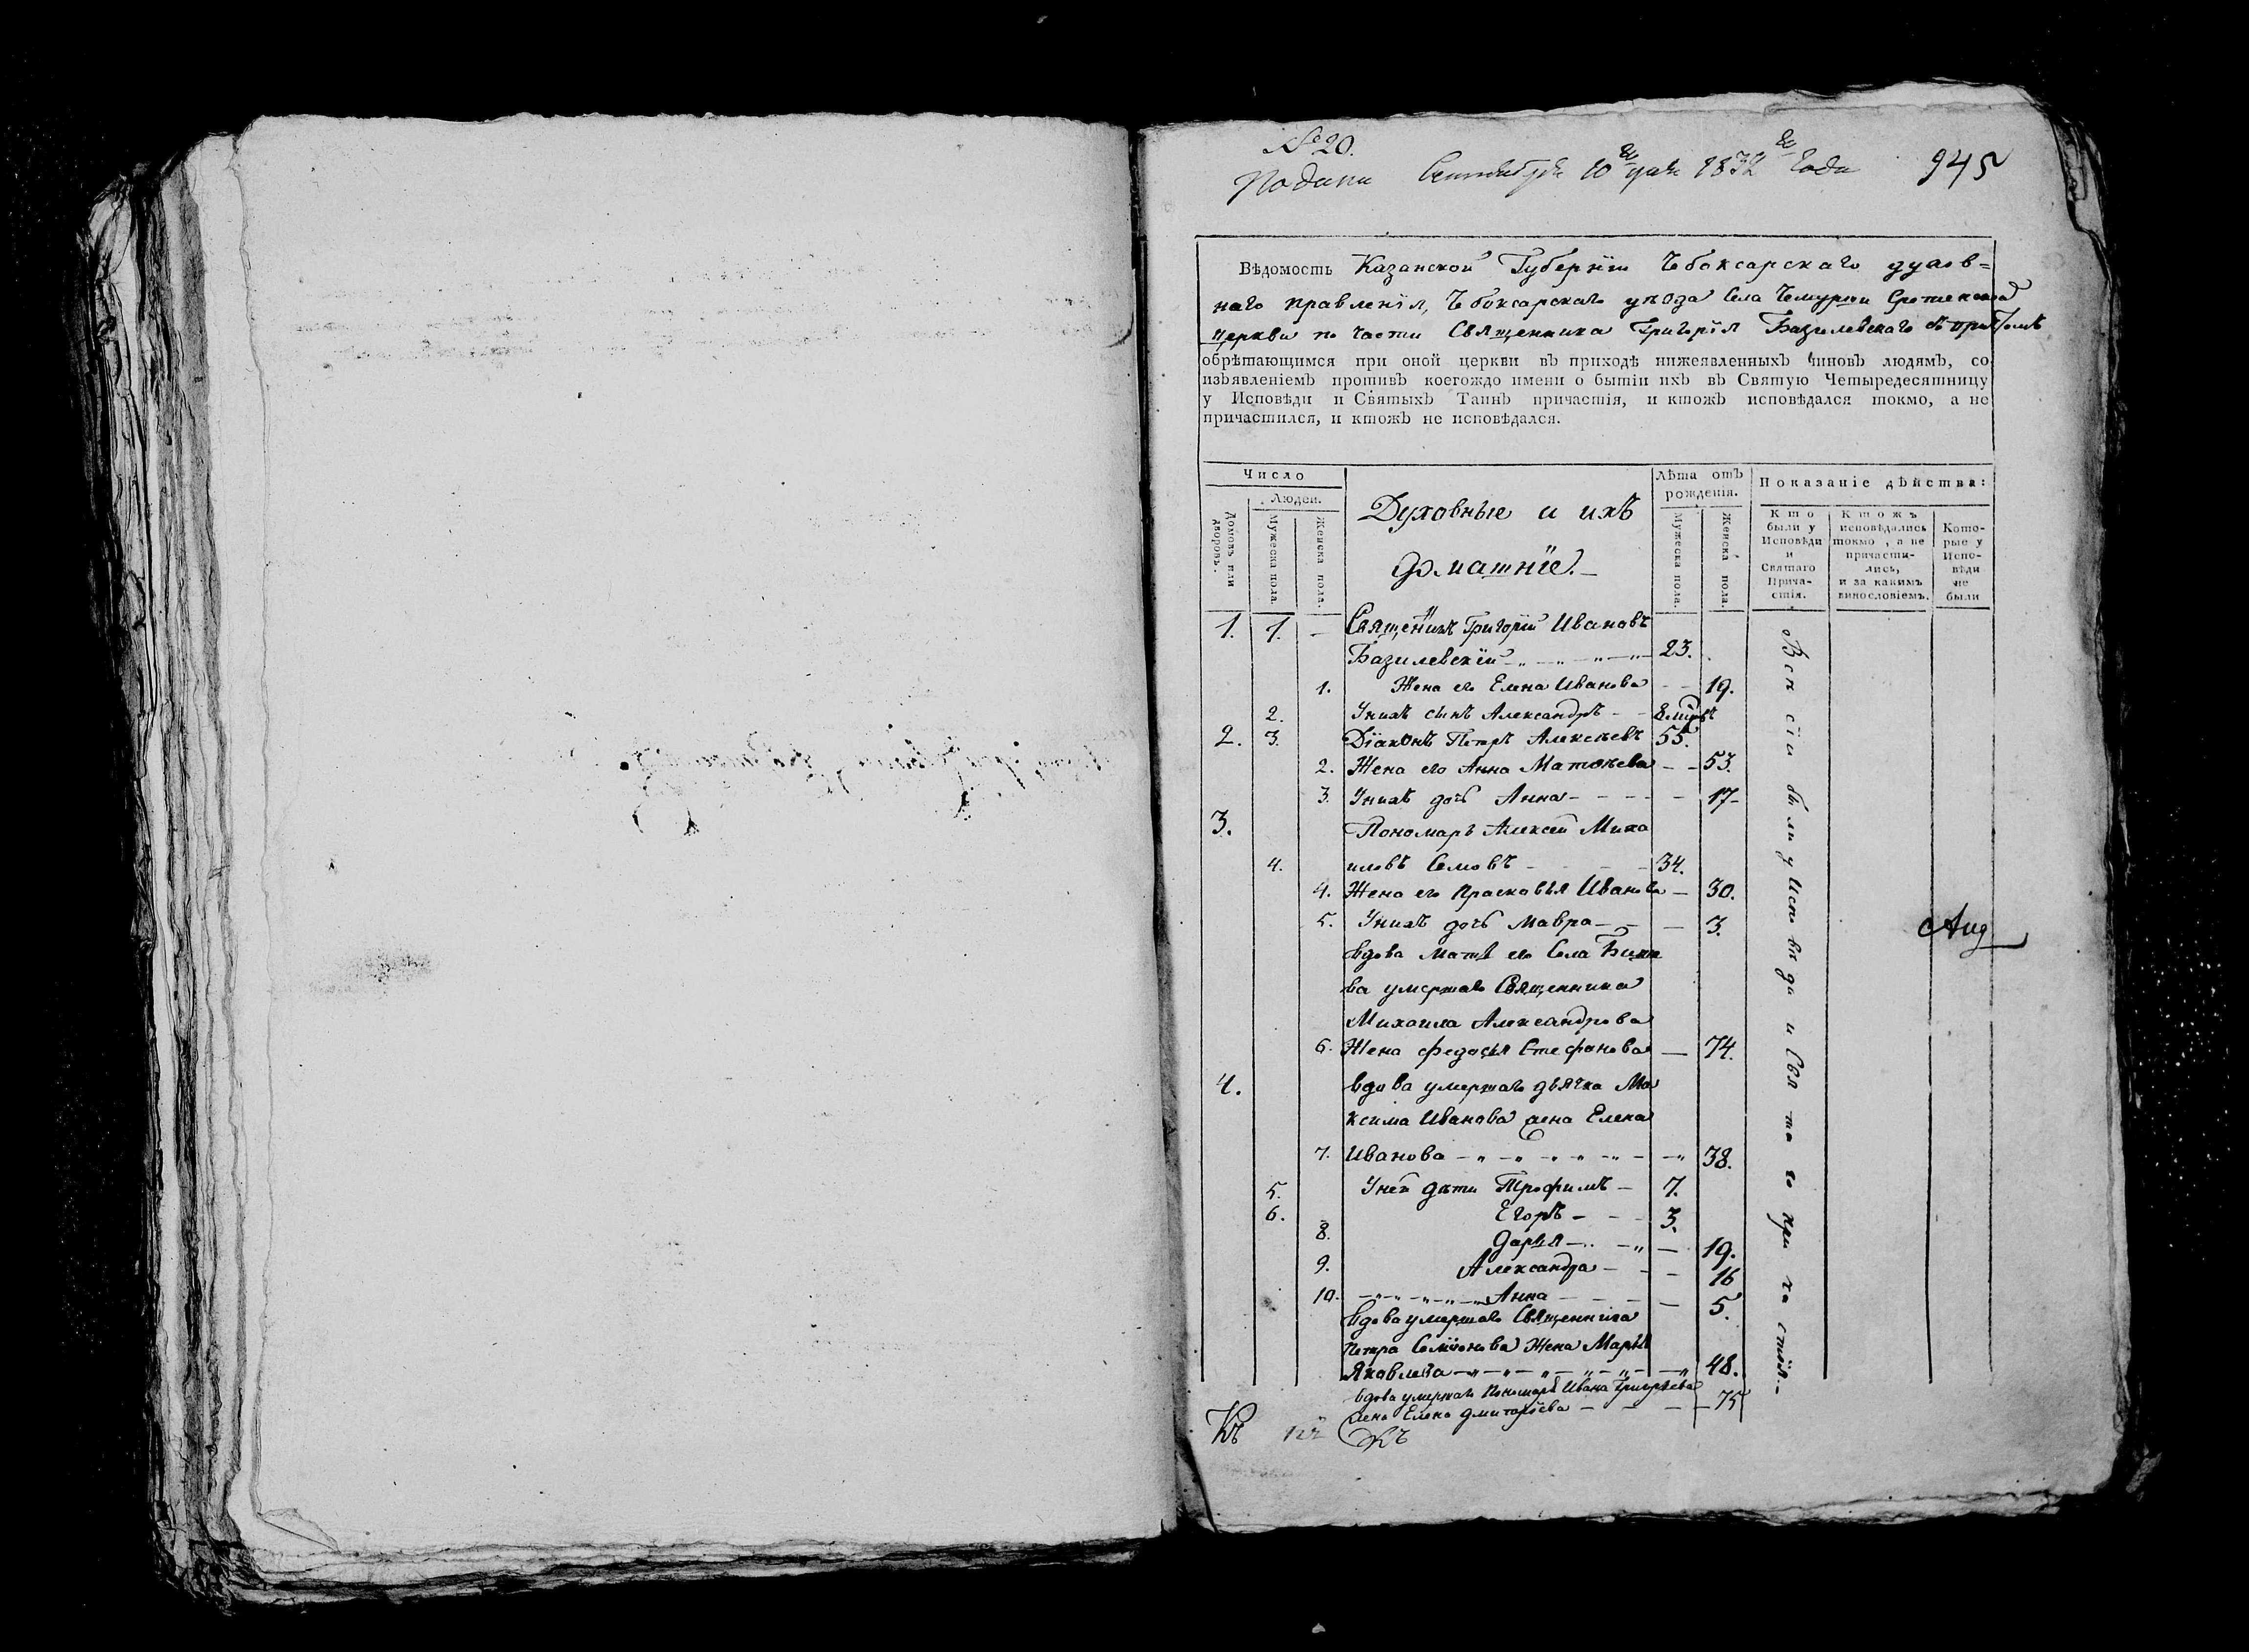 № 20.
Подана Сентября 10го дня 1832го года 945
Вѣдомость Казанской Губернїи Чебоксарскаго духов=
наго правленїя, Чебоксарскаго уѣзда Села Чемурши Сретенской
церкви по части Священника Григорїя Базилевскаго съ причтомъ
обрѣтающимся при оной церкви въ приходѣ нижеявленныхъ чиновъ людямъ, со
изъявленіемъ противъ коегождо имени о бытіи ихъ въ Святую Четыредесятницу
у Исповѣди и Святыхъ Таинъ причастія, и ктожъ исповѣдался токмо, а не
причастился, и ктожъ не исповѣдался.
Число
Людей.
Домовъ или дворовъ.
Мужеска пола.
Женска пола.
Духовные и ихъ
домашнїе.
Лѣта отъ рожденія.
Мужеска пола.
Женска пола.
Показаніе дѣйства:
Кто были у Исповѣди и Святаго Прича-стія.
Ктожъ исповѣдались токмо, а не причасти-лись, и за какимъ винословіемъ.
Кото-рые у Испо-вѣди не были
1. 1. — Священникъ Григорїй Ивановъ
Базилевскїй 23.
1. Жена его Елена Иванова 19.
2. У нихъ сынъ Александръ
2. 3. Дїаконъ Петръ Алексѣевъ 55.
2. Жена его Анна Матвѣева 53.
3. У нихъ дочь Анна 17
3. Пономарь Алексѣй Миха
4. иловъ Семовъ 34.
4. Жена его Прасковья Иванова 30.
5. У нихъ дочь Мавра 3.
вдова мать его Села
ва умершаго Священника
Михаила Александрова
6. Жена Федосья Стефанова 74.
4. вдова умершаго дьячка Ма
ксима Иванова жена Елена
7. Иванова 38.
5. У ней дѣти Трофимъ 7.
6. Егоръ 3.
8. Дарья 19.
9. Александра 16
10. Анна 5.
вдова умершаго Священника
Петра Семїонова Жена Марья
Яковлева 48.
вдова умершаго Пономаря Ивана Григорьева
жена Елена Дмитрїева 75
Всѣ сїи были у Исповѣди и Святаго причастїя.